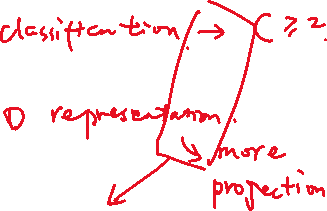 classification → C ≥ 2.
① representation.
more
projection